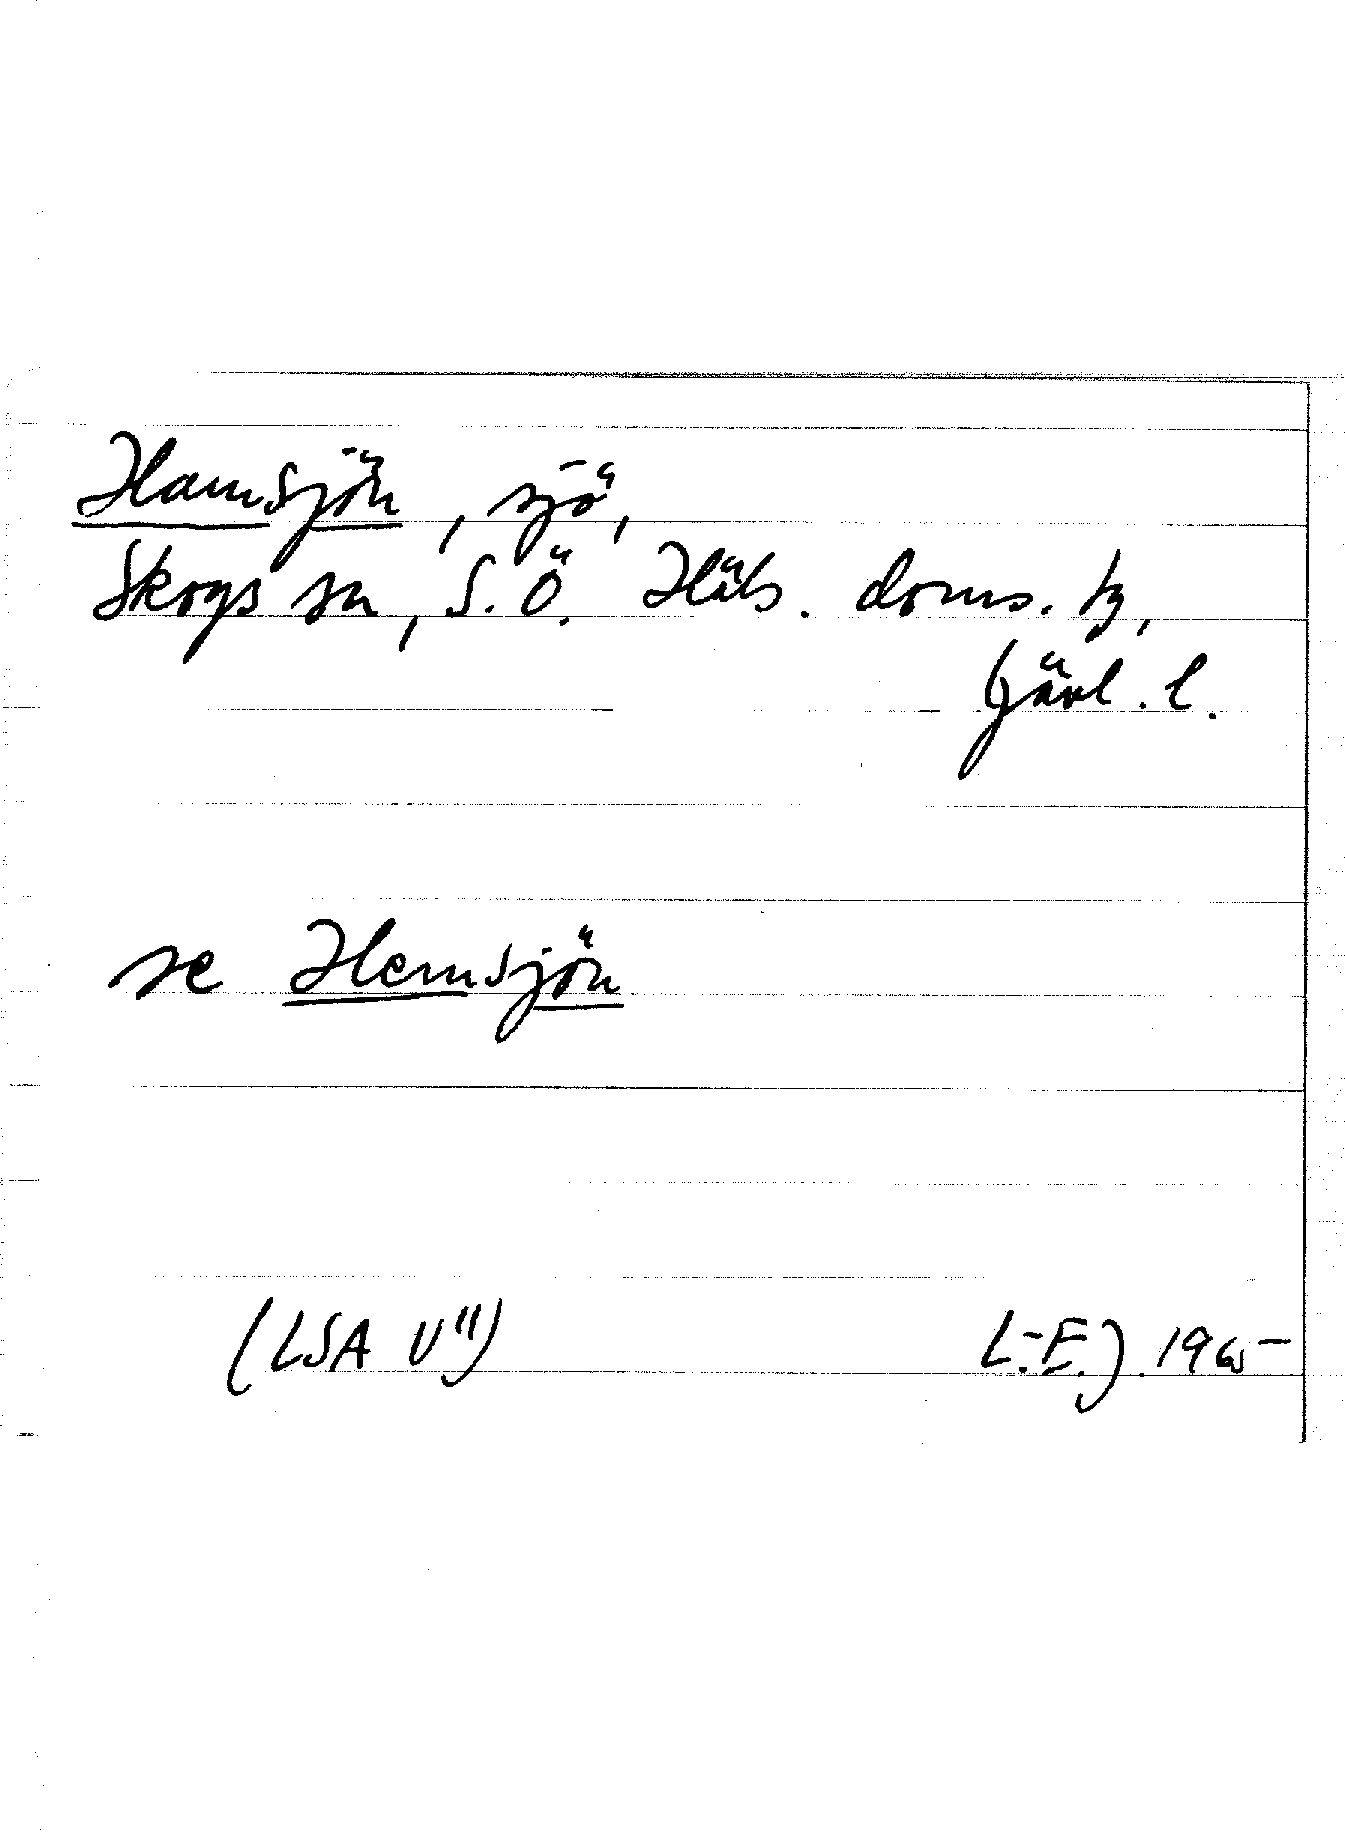 Hamsjön, sjö,
Skogs sn, S.Ö. Häls. doms. tg,
Gävl. l.
se Hemsjön
(LSA V") L.-E.) 1965